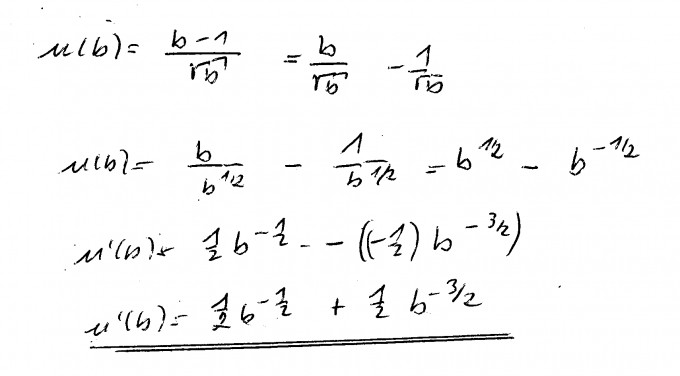 u(b) = (b-1)/√b = b/√b - 1/√b
u(b) = b/b^1/2 - 1/b^1/2 = b^1/2 - b^-1/2
u'(b) = 1/2 b^-1/2 - - ((-1/2) b^-3/2)
u'(b) = 1/2 b^-1/2 + 1/2 b^-3/2